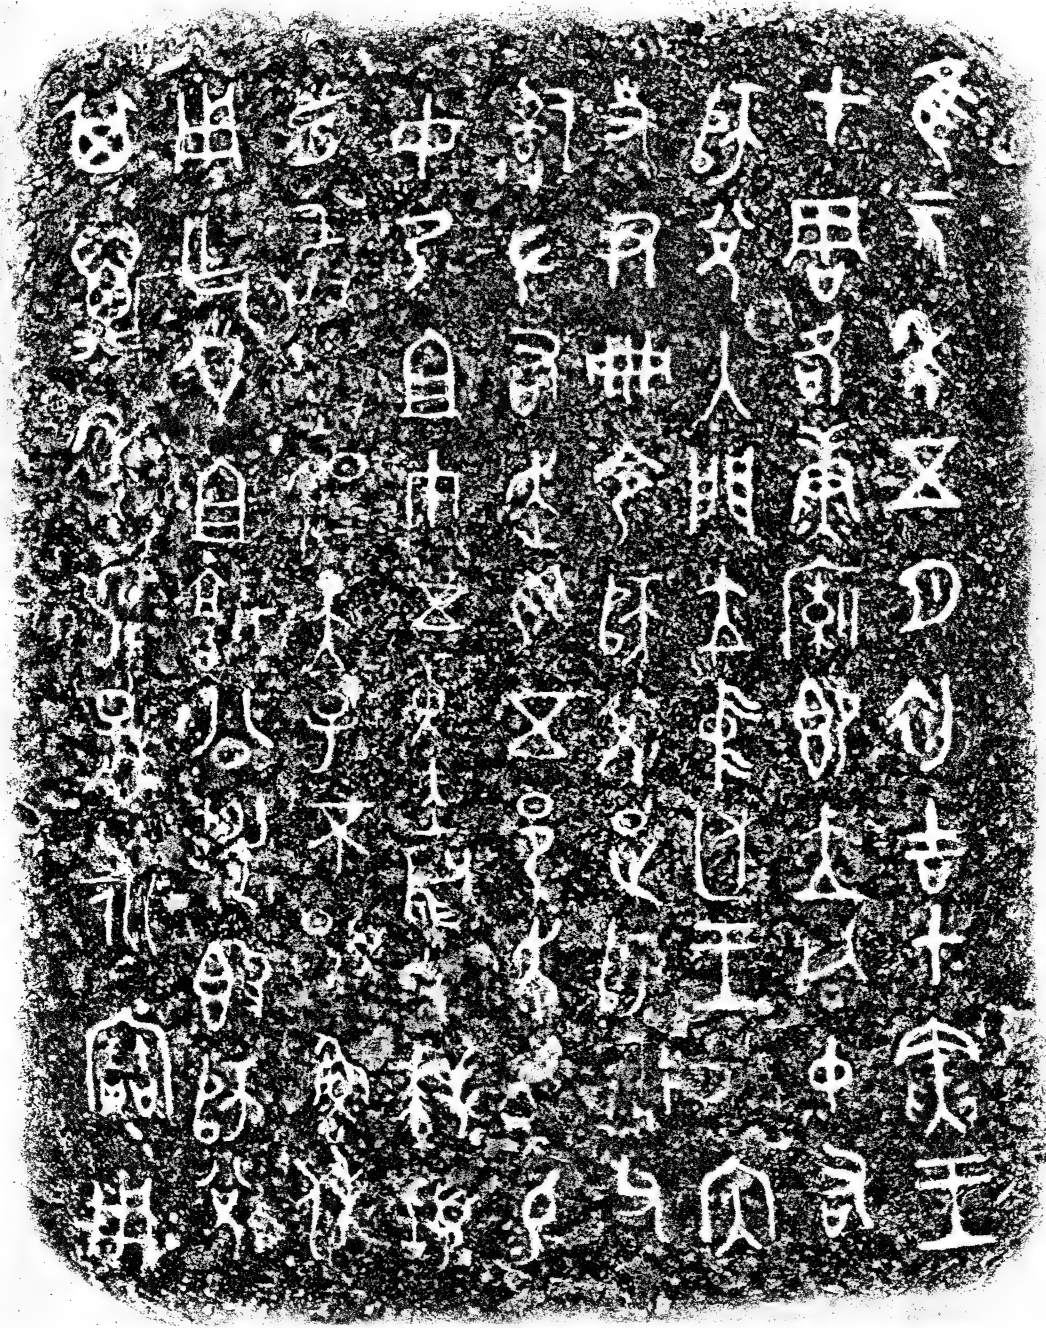 隹元年五月初吉甲寅王
才周各康廟即立同中右
師兌入門立中廷王乎內
史尹冊令師兌疋師龢父
𤔲左右走馬五邑走馬易
女乃且巾五黃赤舄兌拜𩒨
首敢對揚天子不顯魯休
用乍皇且城公䵼𣪘師兌
其萬年子=孫=永寶用